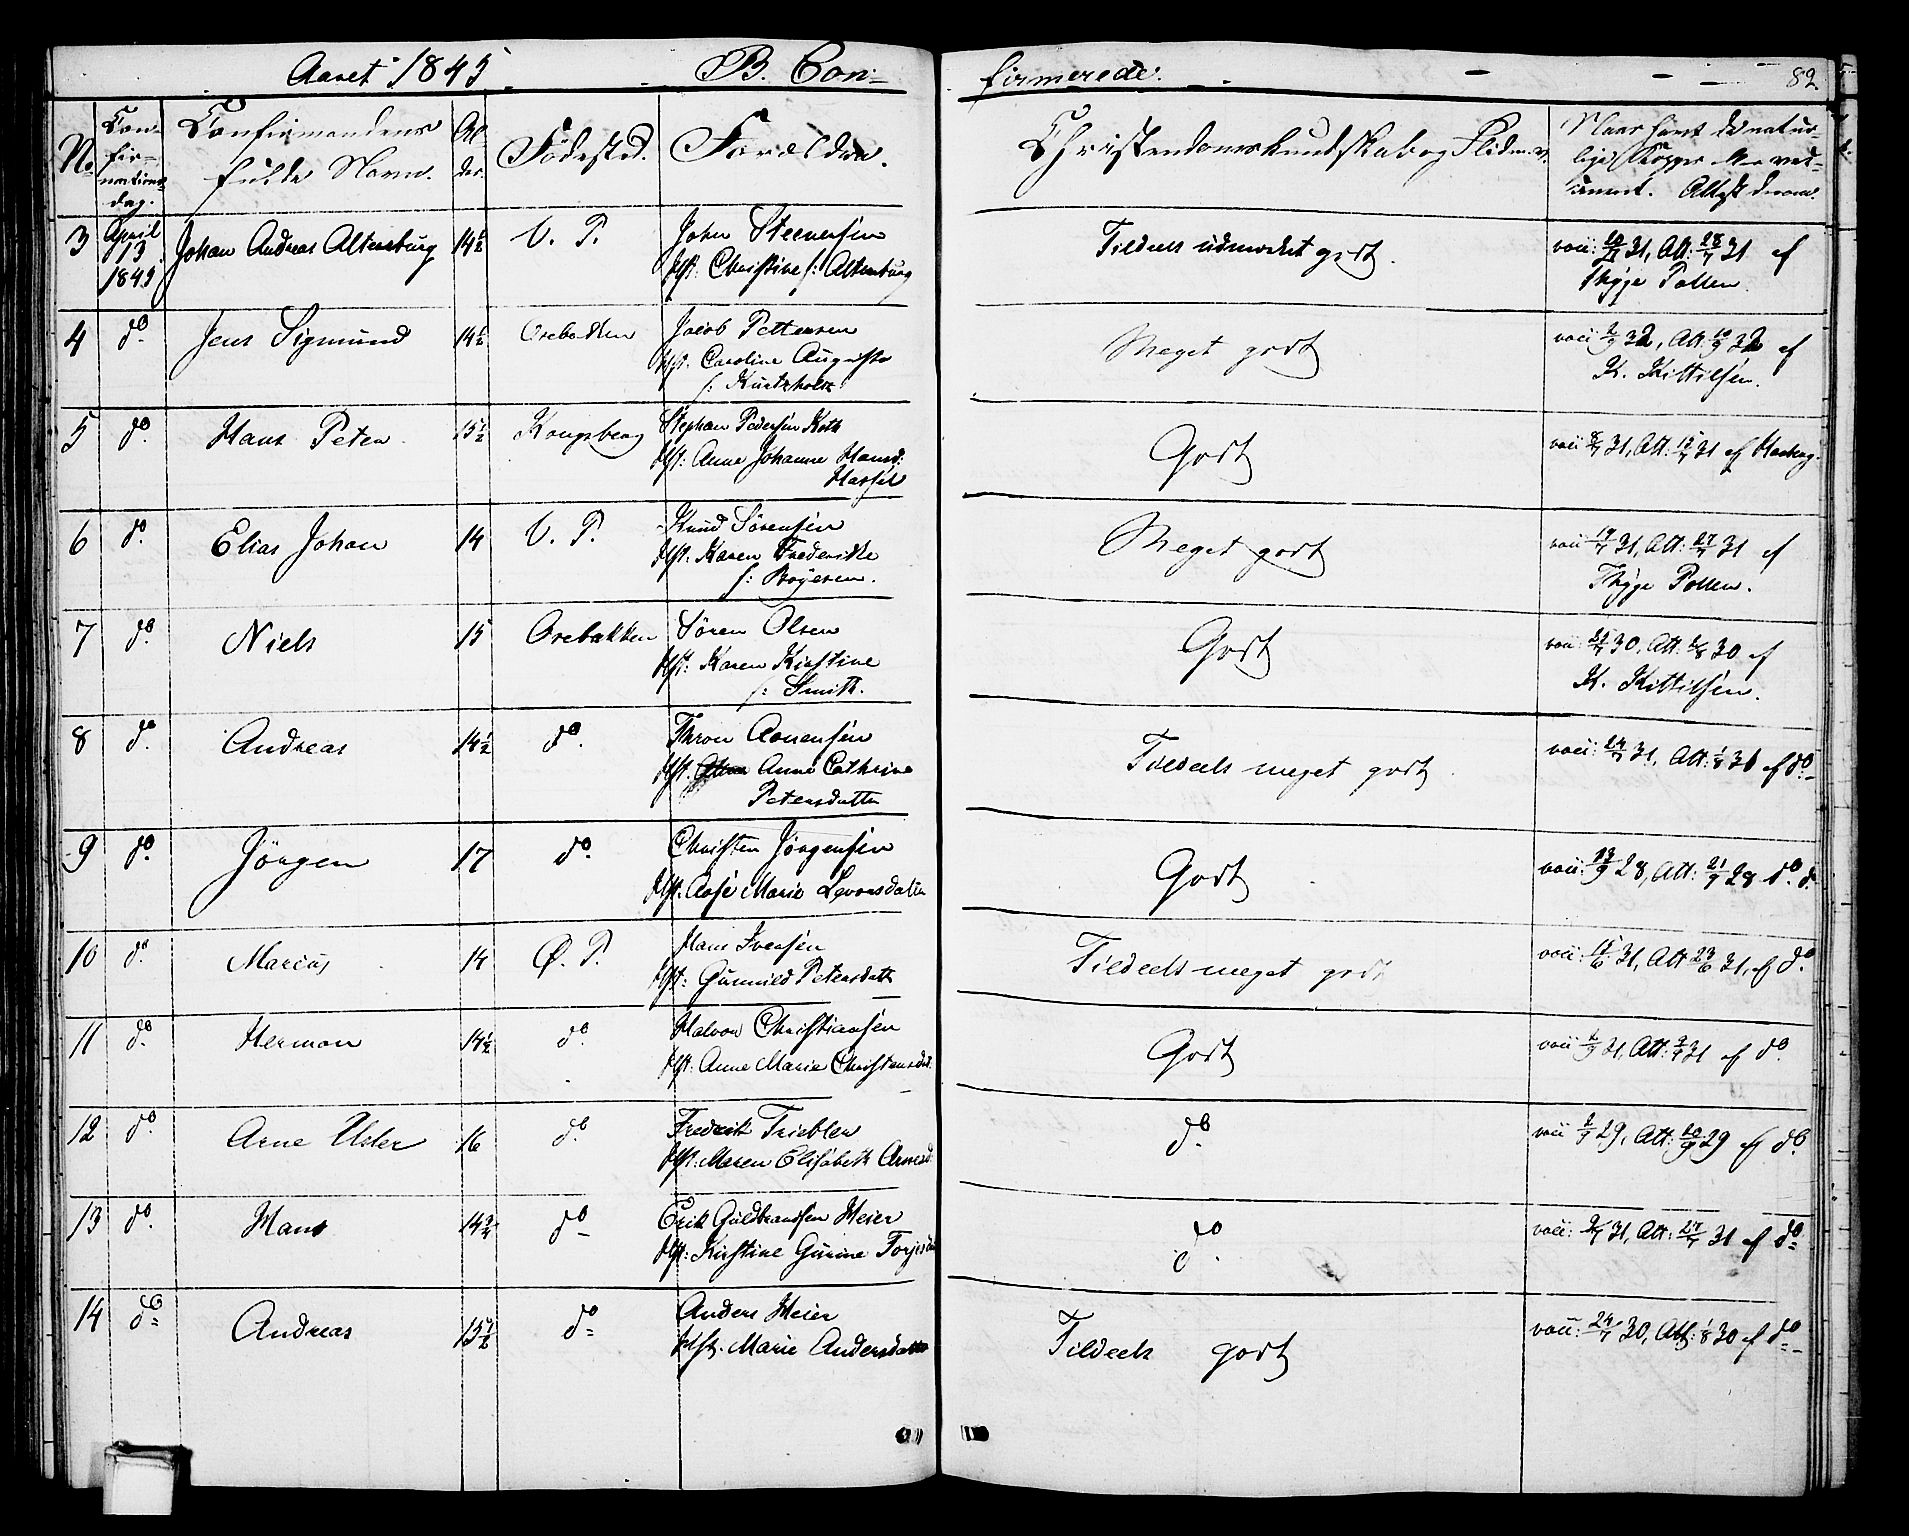 Aaret 1845 B. Con-
firmerede. 82
No. Con-
fir-
mations
dag. Confirmandens
fulde Navn. Al
der. Födested. Forældre. Christendomskundskab og Flid m. v. Naar havt de natur-
lige Kopper eller vac-
cineret. Attest derom.
3 April
13
1845 Johan Andreas Altenburg 14½ V. P. John Steenersen
Hst: Christine f: Altenburg Tildeels udmærket godt. vacc: 20/7 31, Att: 28/7 31 af
Thyge Polsen.
4 do. Jens Sigmund 14½ Osebakken Jacob Pettersen
Hst. Caroline Augusta
f: Kurtzholtz Meget godt vacc: 2/9 32, Att: 10/9 32 af
K. Kittilsen.
5 do. Hans Peter 15½ Kongsberg Stephan Pedersen Koth
Hst: Anne Johanne Hansd:
Hassel Godt vacc 8/7 31, Att: 12/7 31 af Harberg.
6 do. Elias Johan 14 V. P. Knud Sörensen
Hst: Karen Frederikke
f: Boyesen. Meget godt vacc 19/7 31, Att: 27/7 31 af
Thyge Polsen.
7 do. Niels 15 Osebakken Sören Olsen
Hst: Karen Kirstine
f: Smith. Godt vacc: 25/7 30, Att: 1/8 30 af
K. Kittilsen.
8 do. Andreas 14½ do. Thron Aanensen
Hst. Anne Cathrine
Petersdatter Tildeels meget godt vacc: 24/7 31, Att: 1/8 31 af do.
9 do. Jörgen 17 do. Christen Jörgensen
Hst. Aase Marie Levorsdatter Godt vacc: 13/9 28, Att: 21/9 28 do. d.
10 do. Marius 14 Ø. P. Hans Iversen
Hst: Gunnild Petersdatt Tildeels meget godt vacc: 15/6 31, Att 23/6 31, af do.
11 do. Herman 14½ do. Halvor Christiansen
Hst: Anne Marie Christensd. Godt vacc 1/9 31, Att: 9/9 31 af do.
12 do. Arne Uhler 16 do. Fredrik Triebler
Hst: Maren Elisabeth Arnesd. do. vacc 2/9 29, Att: 10/9 29 af do.
13 do. Hans 14¾ do Erik Guldbrandsen Meier
Hst: Kirstine Gurine Torjesd. do. vacc: 9/7 31, Att: 17/7 31 af do
14 do Andreas 15½ do Anders Meier
Hst. Marie Andersdatter Tildeels godt vacc: 24/7 30, Att: 1/8 30 af do